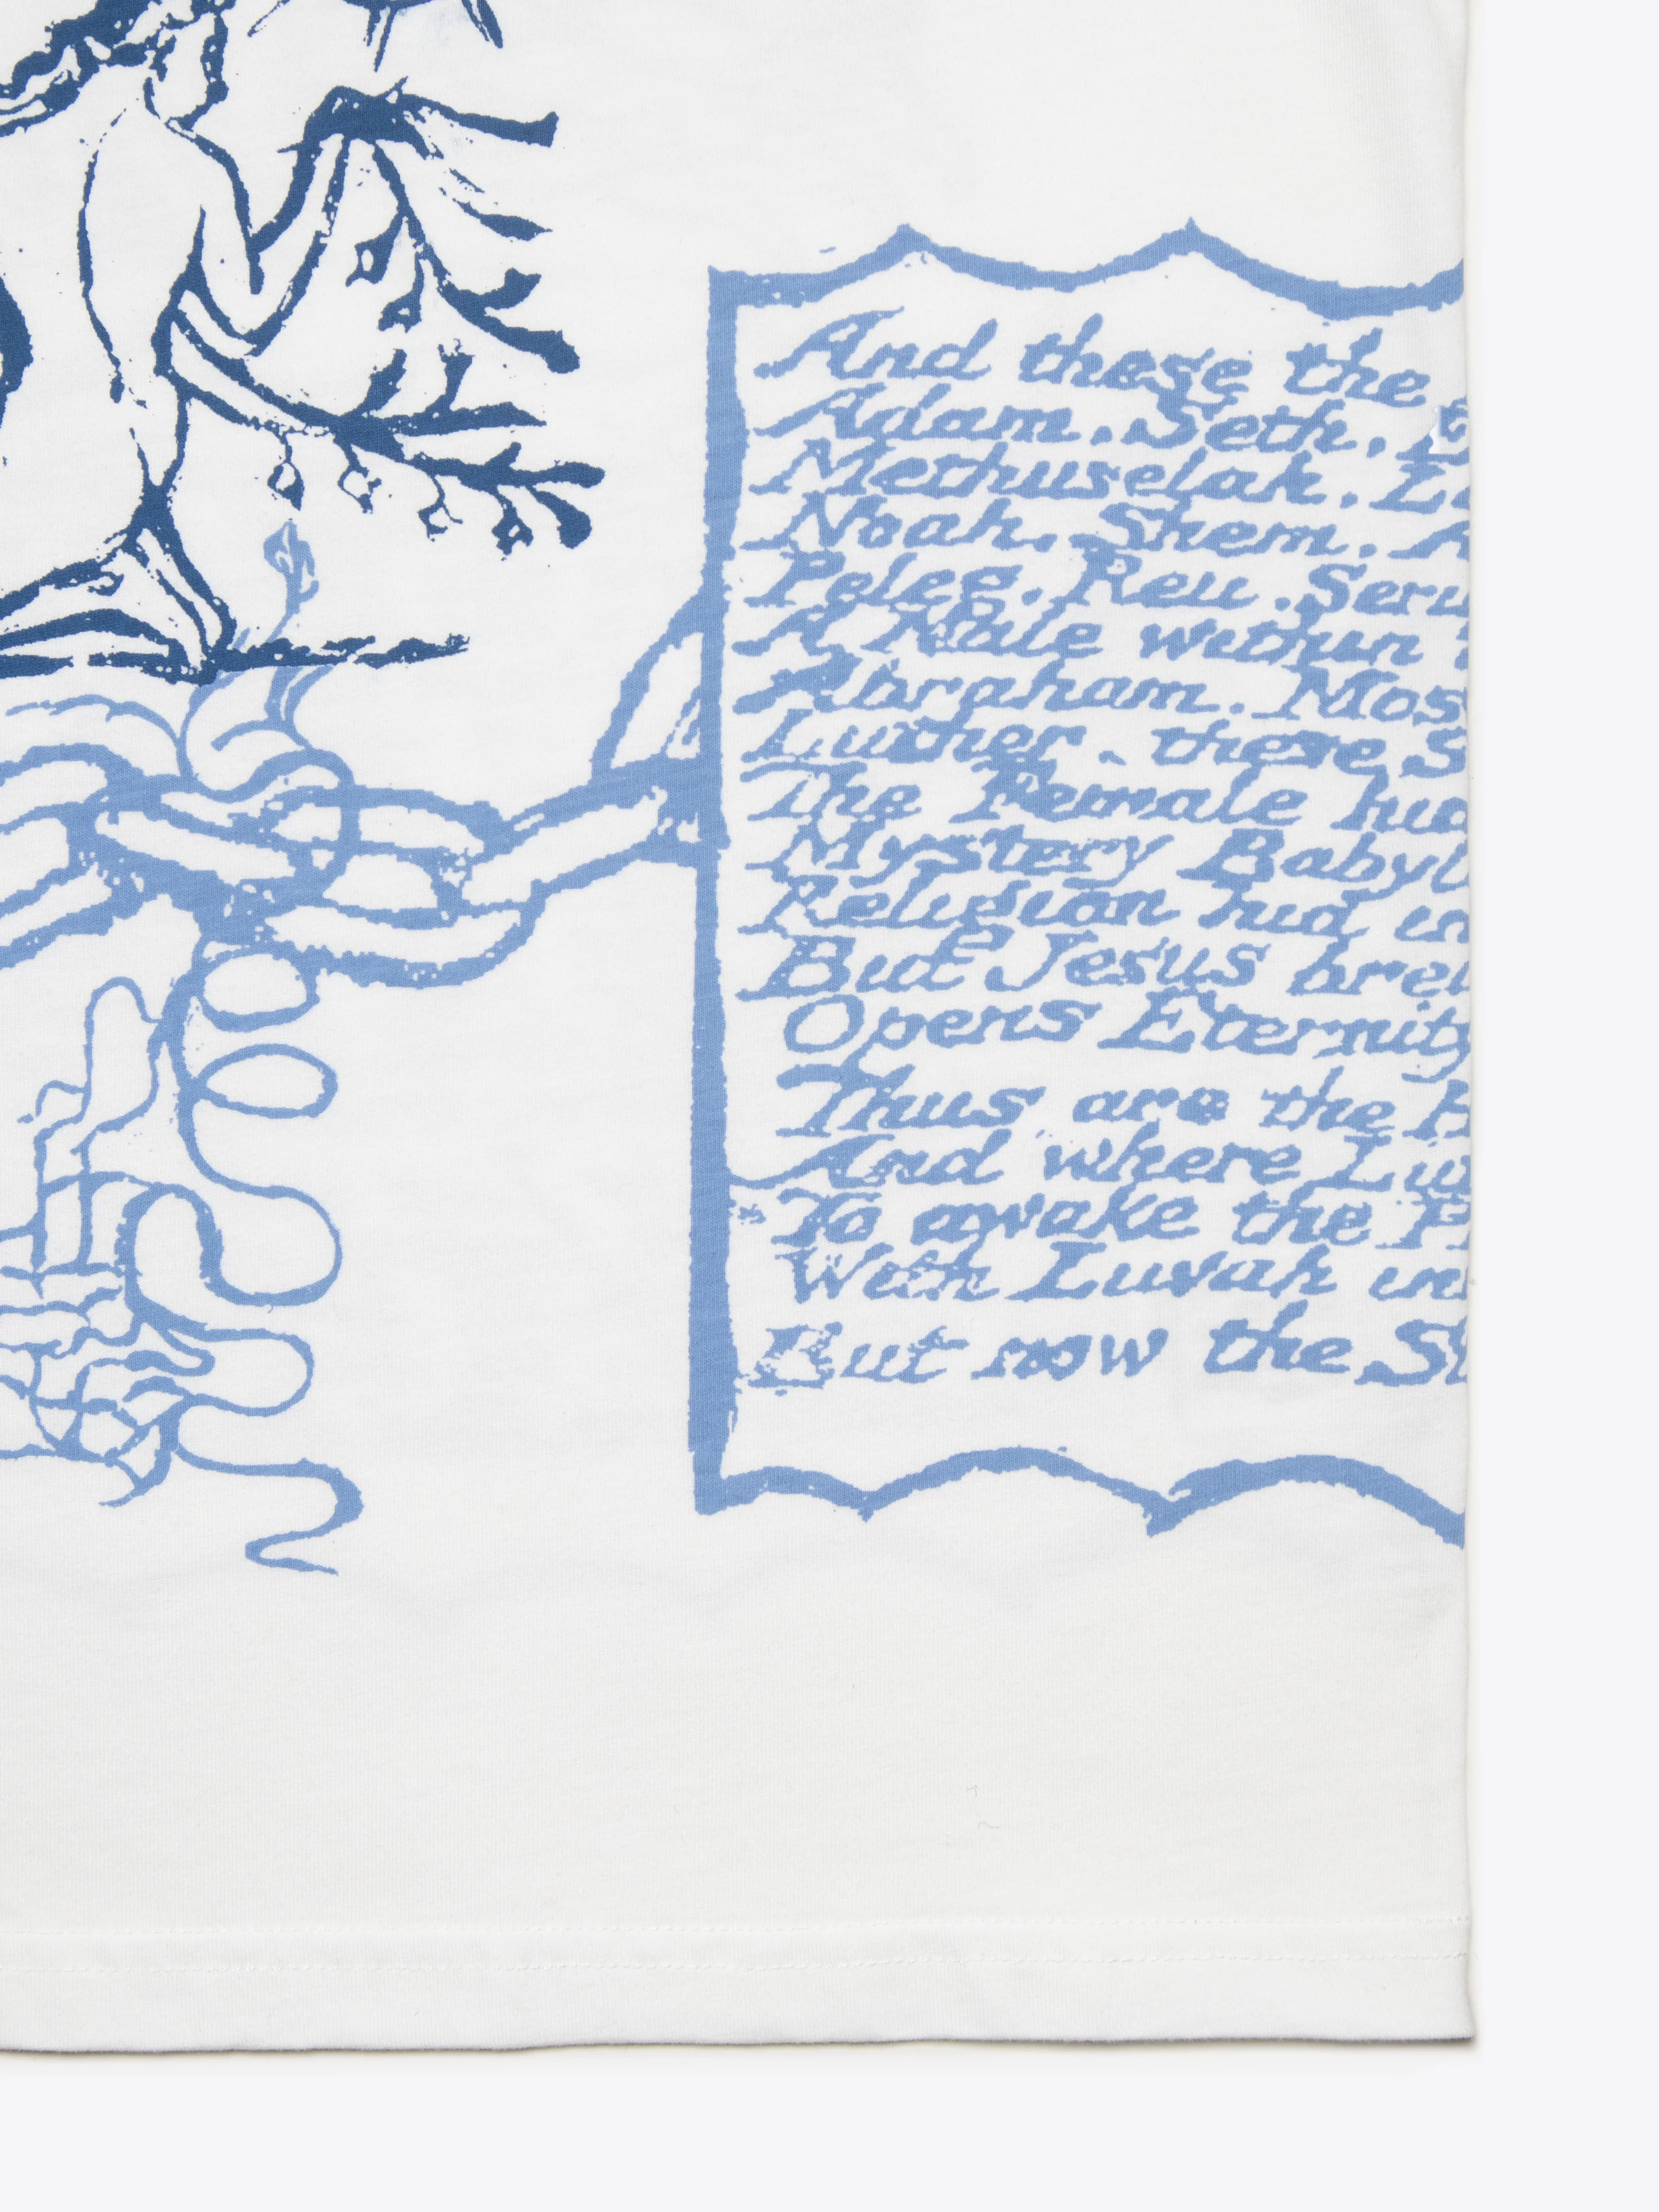 And these the
Adam. Seth. E
Methuselah. La
Noah. Shem. A
Peleg. Reu. Seru
A Male within
Abraham. Mos
Luther. these S
The Female hid
Mystery Babyl
Religion hid in
But Jesus brea
Opens Eternity
Thus are the H
And where Lu
To awake the P
With Luvah in
But now the S